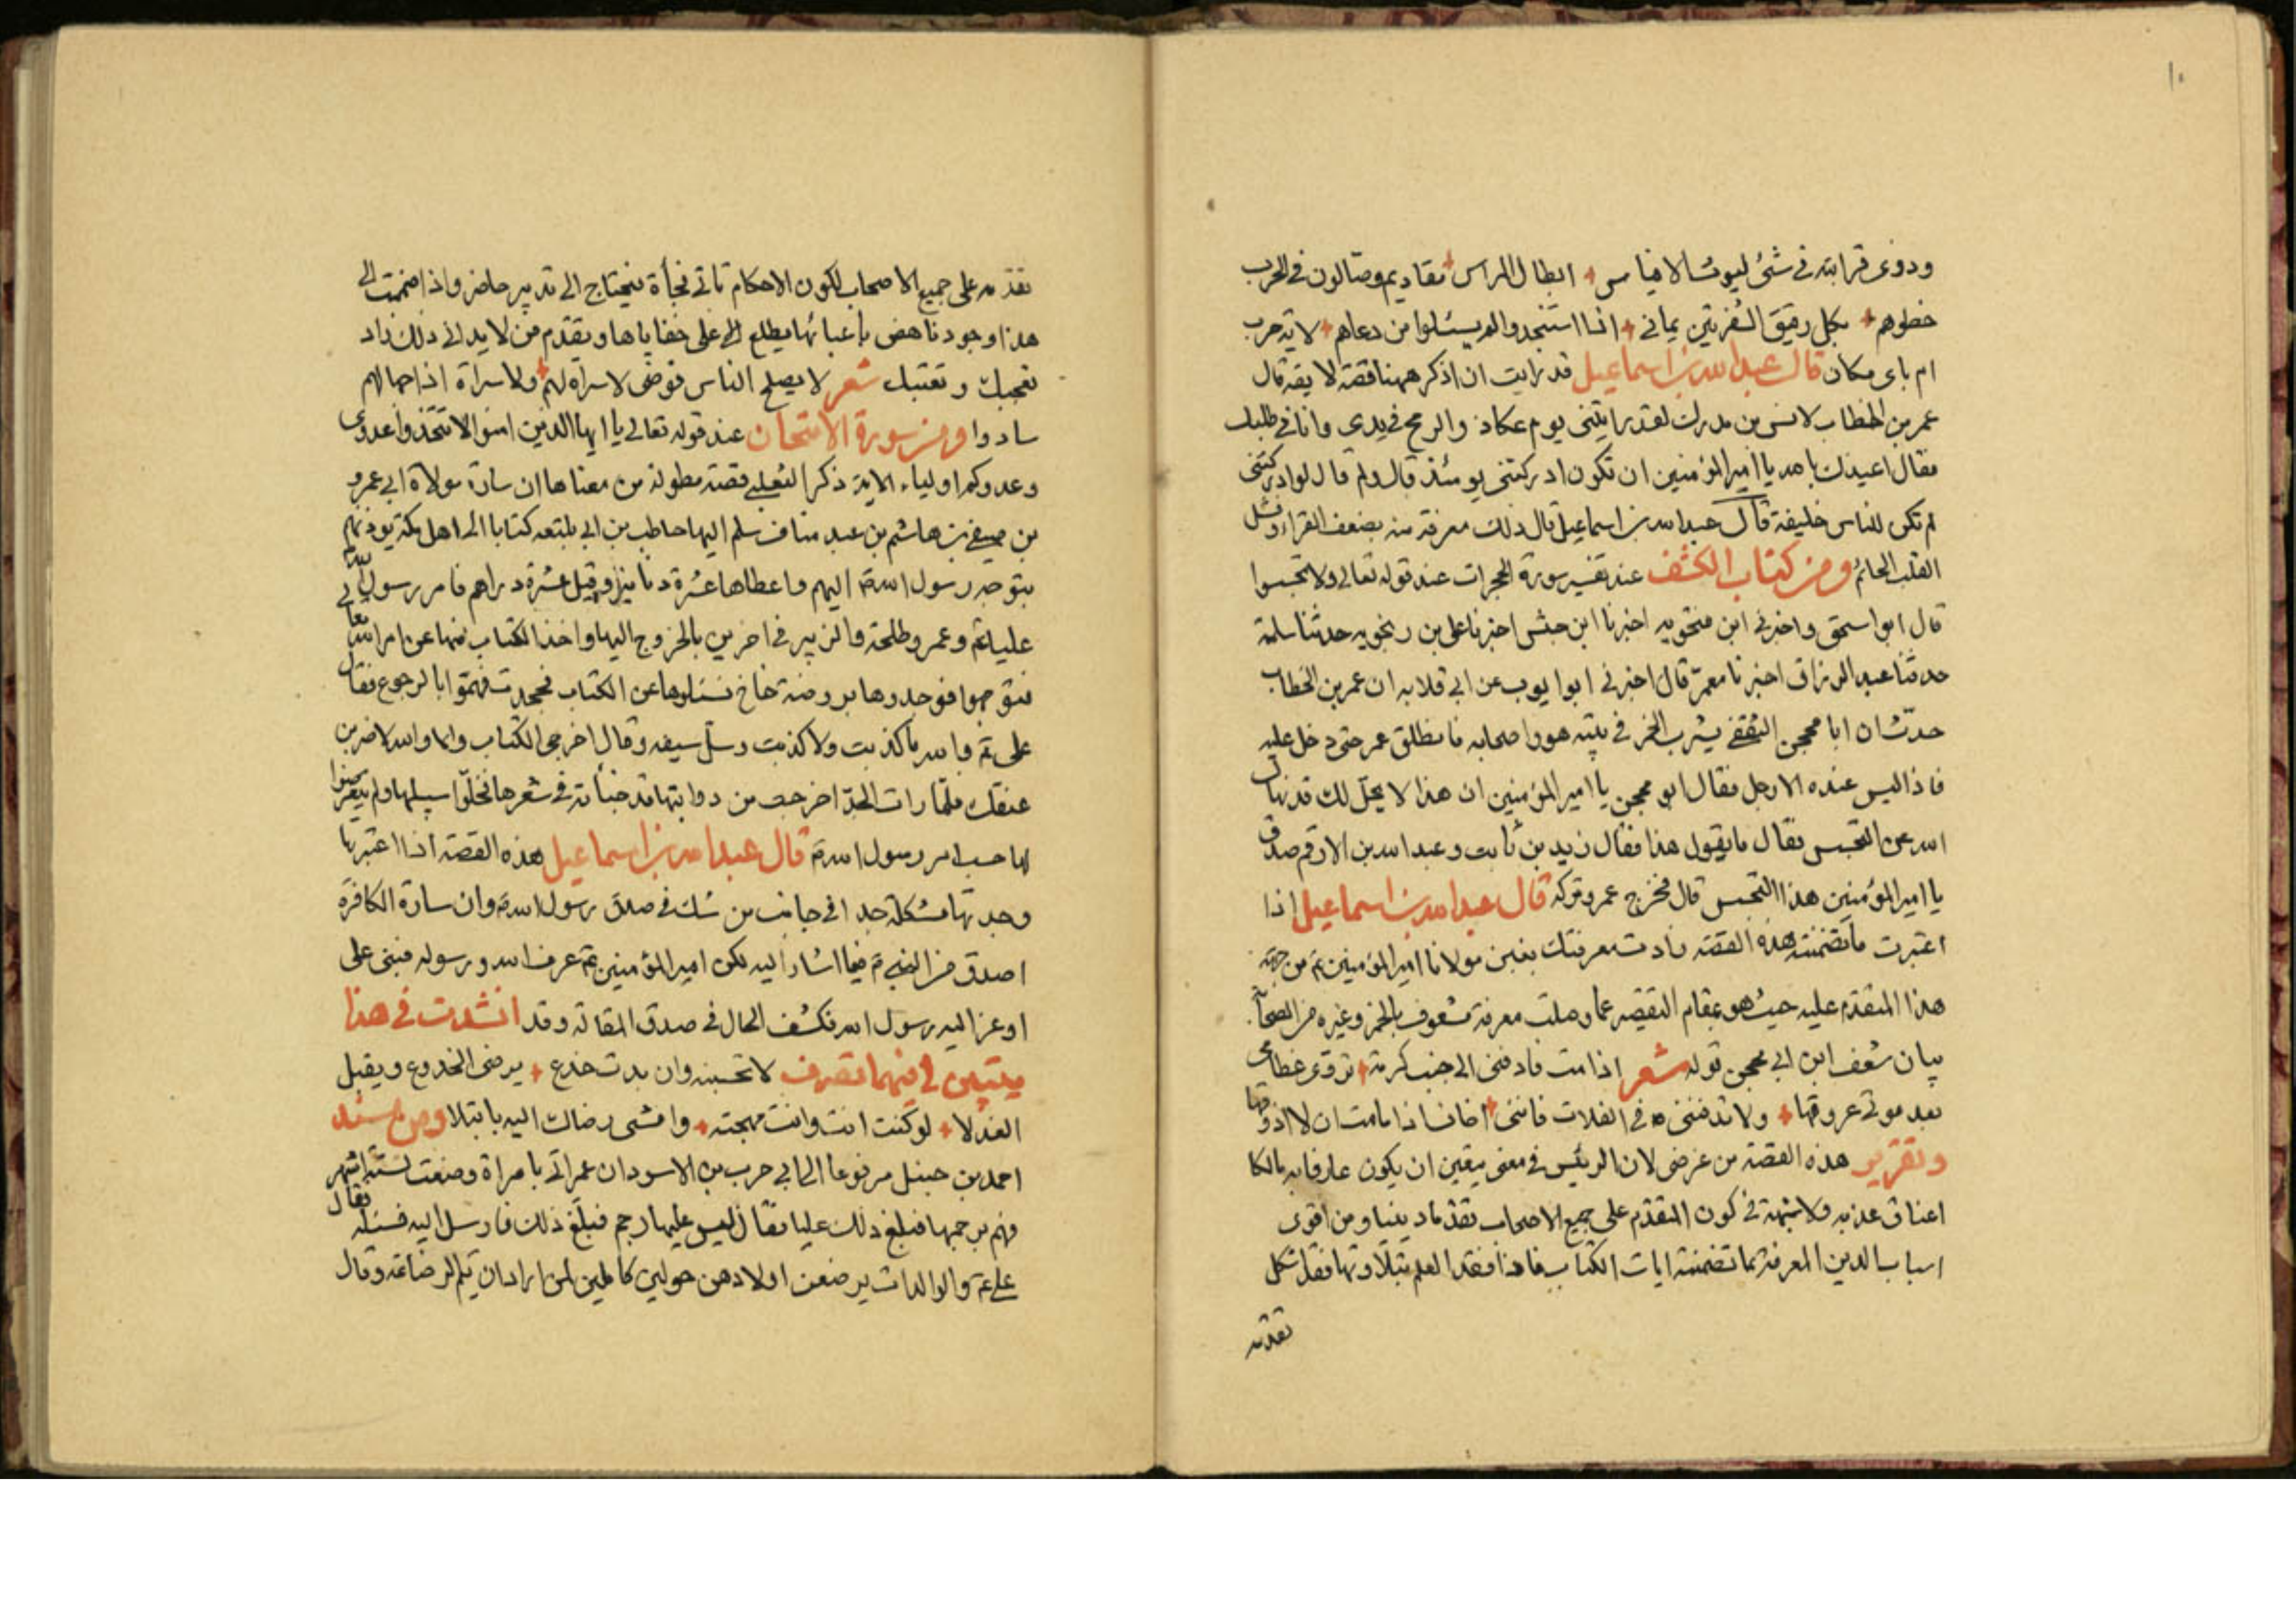 ١٠
ودوى قرابته في شئ ليوث الاخياس ابطال المراس مقاديم وصالون في الحرب
خطوهم بكل رقيق الشفرتين يماني اذا استنجدوا لم يسئلوا من دعاهم لاية حرب
ام باى مكان قال عبد الله بن اسماعيل قد رايت ان اذكر ههنا قصة لايقة قال
عمر بن الخطاب لانس بن مدرك لقد رايتني يوم عكاذ والرمح في يدى وانا في طلبك
فقال اعيذك بالله يا امير المؤمنين ان تكون ادركتني يومئذ قال ولم قال لو ادركتني
لم تكن للناس خليفة قال عبد الله بن اسماعيل قال ذلك معرفة منه بضعف القراء وفشل
القلب الحائم ومن كتاب الكشف عند تفسير سورة الحجرات عند قوله تعالى ولا تجسسوا
قال ابو اسحق واخبرني ابن فنجويه اخبرنا ابن حبش اخبرنا على بن زنجويه حدثنا سلمة
حدثنا عبد الرزاق اخبرنا معمر قال اخبرني ابو ايوب عن ابي قلابه ان عمر بن الخطاب
حدّث ان ابا محجن الثقفي يشرب الخمر في بيته هو واصحابه فانطلق عمر حتى دخل عليه
فاذا ليس عنده الا رجل فقال ابو محجن يا امير المؤمنين ان هذا لا يحل لك قد نهاك
الله عن التجسس فقال ما يقول هذا فقال زيد بن ثابت وعبد الله بن الارقم صدق
يا امير المؤمنين هذا التجسس قال فخرج عمر وتركه قال عبد الله بن اسماعيل اذا
اعتبرت ما تضمنته هذه القصة زادت معرفتك بغبن مولانا امير المؤمنين ع من جهة
هذا المتقدم عليه حيث هو بمقام التقصير عما وصلت معرفة مشعوف بالخمر وغيره من الصحابة
بيان شعف ابن ابي محجن قوله شعر اذا مت فادفنى الى جنب كرمة تروى عظامى
بعد موتي عروقها ولا تدفننى في الفلات فاننى اخاف اذا ما مت ان لا اذوقها
وتقرير هذه القصة من غرضى لان الرئيس في معنى يتعين ان يكون عارفا به مالكا
اعناق عذبه ولا شبهة في كون المتقدم على جميع الاصحاب تقدما دينيا ومن اقوى
اسباب الدين المعرفة بما تضمنته ايات الكتاب فاذا فقد العلم بتلاوتها فقد اشكل
تقدمه
تقدمه على جميع الاصحاب لكون الاحكام تاتي فجأة فيحتاج الى تدبير حاضر واذا ضممت الى
هذا وجود ناهض باعبائها مطلع الى على خفاياها ويقدم من لا يدانى ذلك زاد
تعجبك وتعتبك شعر لا يصلح الناس فوضى لا سراة لهم ولا سراة اذا جهالهم
سادوا ومن سورة الامتحان عند قوله تعالى يا ايها الذين امنوا لا تتخذوا عدوى
وعدوكم اولياء الاية ذكر الثعلبي قصة مطولة من معناها ان سارة مولاة ابي عمرو
بن صيفي بن هاشم بن عبد مناف سلم اليها حاطب بن ابي بلتعه كتابا الى اهل مكة يوذنهم
بتوجه رسول الله ص اليهم واعطاها عشرة دنانير وقيل عشرة دراهم فامر رسول الله
عليا ع وعمر وطلحة والزبير في اخرين بالخروج اليها واخذ الكتاب منها عن امر الله تعالى
فتوجهوا فوجدوها بروضة خاخ فسئلوها عن الكتاب فجحدت فهموا بالرجوع فقال
على ع والله ما كذبت ولا كذبت وسل سيفه وقال اخرجى الكتاب والا والله لاضربن
عنقك فلما رات الجد اخرجته من دوابتها قد خبأته في شعرها فخلوا سبيلها ولم يتعرضوا
لها حسب امر رسول الله ص قال عبد الله بن اسماعيل هذه القصة اذا اعتبرتها
وجدتها مشكلة جدا في جانب من شك في صدق رسول الله ص وان سارة الكافرة
اصدق من النبي ص فيما اشار اليه لكن امير المؤمنين ع عرف الله ورسوله فبنى على
اوعز اليه رسول الله فكشف الحال في صدق المقالة وقد انشدت في هذا
بيتين لى فيهما تصرف لا تحسبنه وان بدت خدع يرضى الخدوع ويقبل
العذلا لو كنت انت وانت مهجته وامشى رضاك اليه ما بتلا ومن مسند
احمد بن حنبل مرفوعا الى ابي حرب بن الاسود ان عمر اتي بامراة وضعت لستة اشهر
فهم برجمها فبلغ ذلك عليا فقال ليس عليها رجم فبلغ ذلك فارسل اليه فسئله فقال
على ع والوالدات يرضعن اولادهن حولين كاملين لمن اراد ان يتم الرضاعة وقال